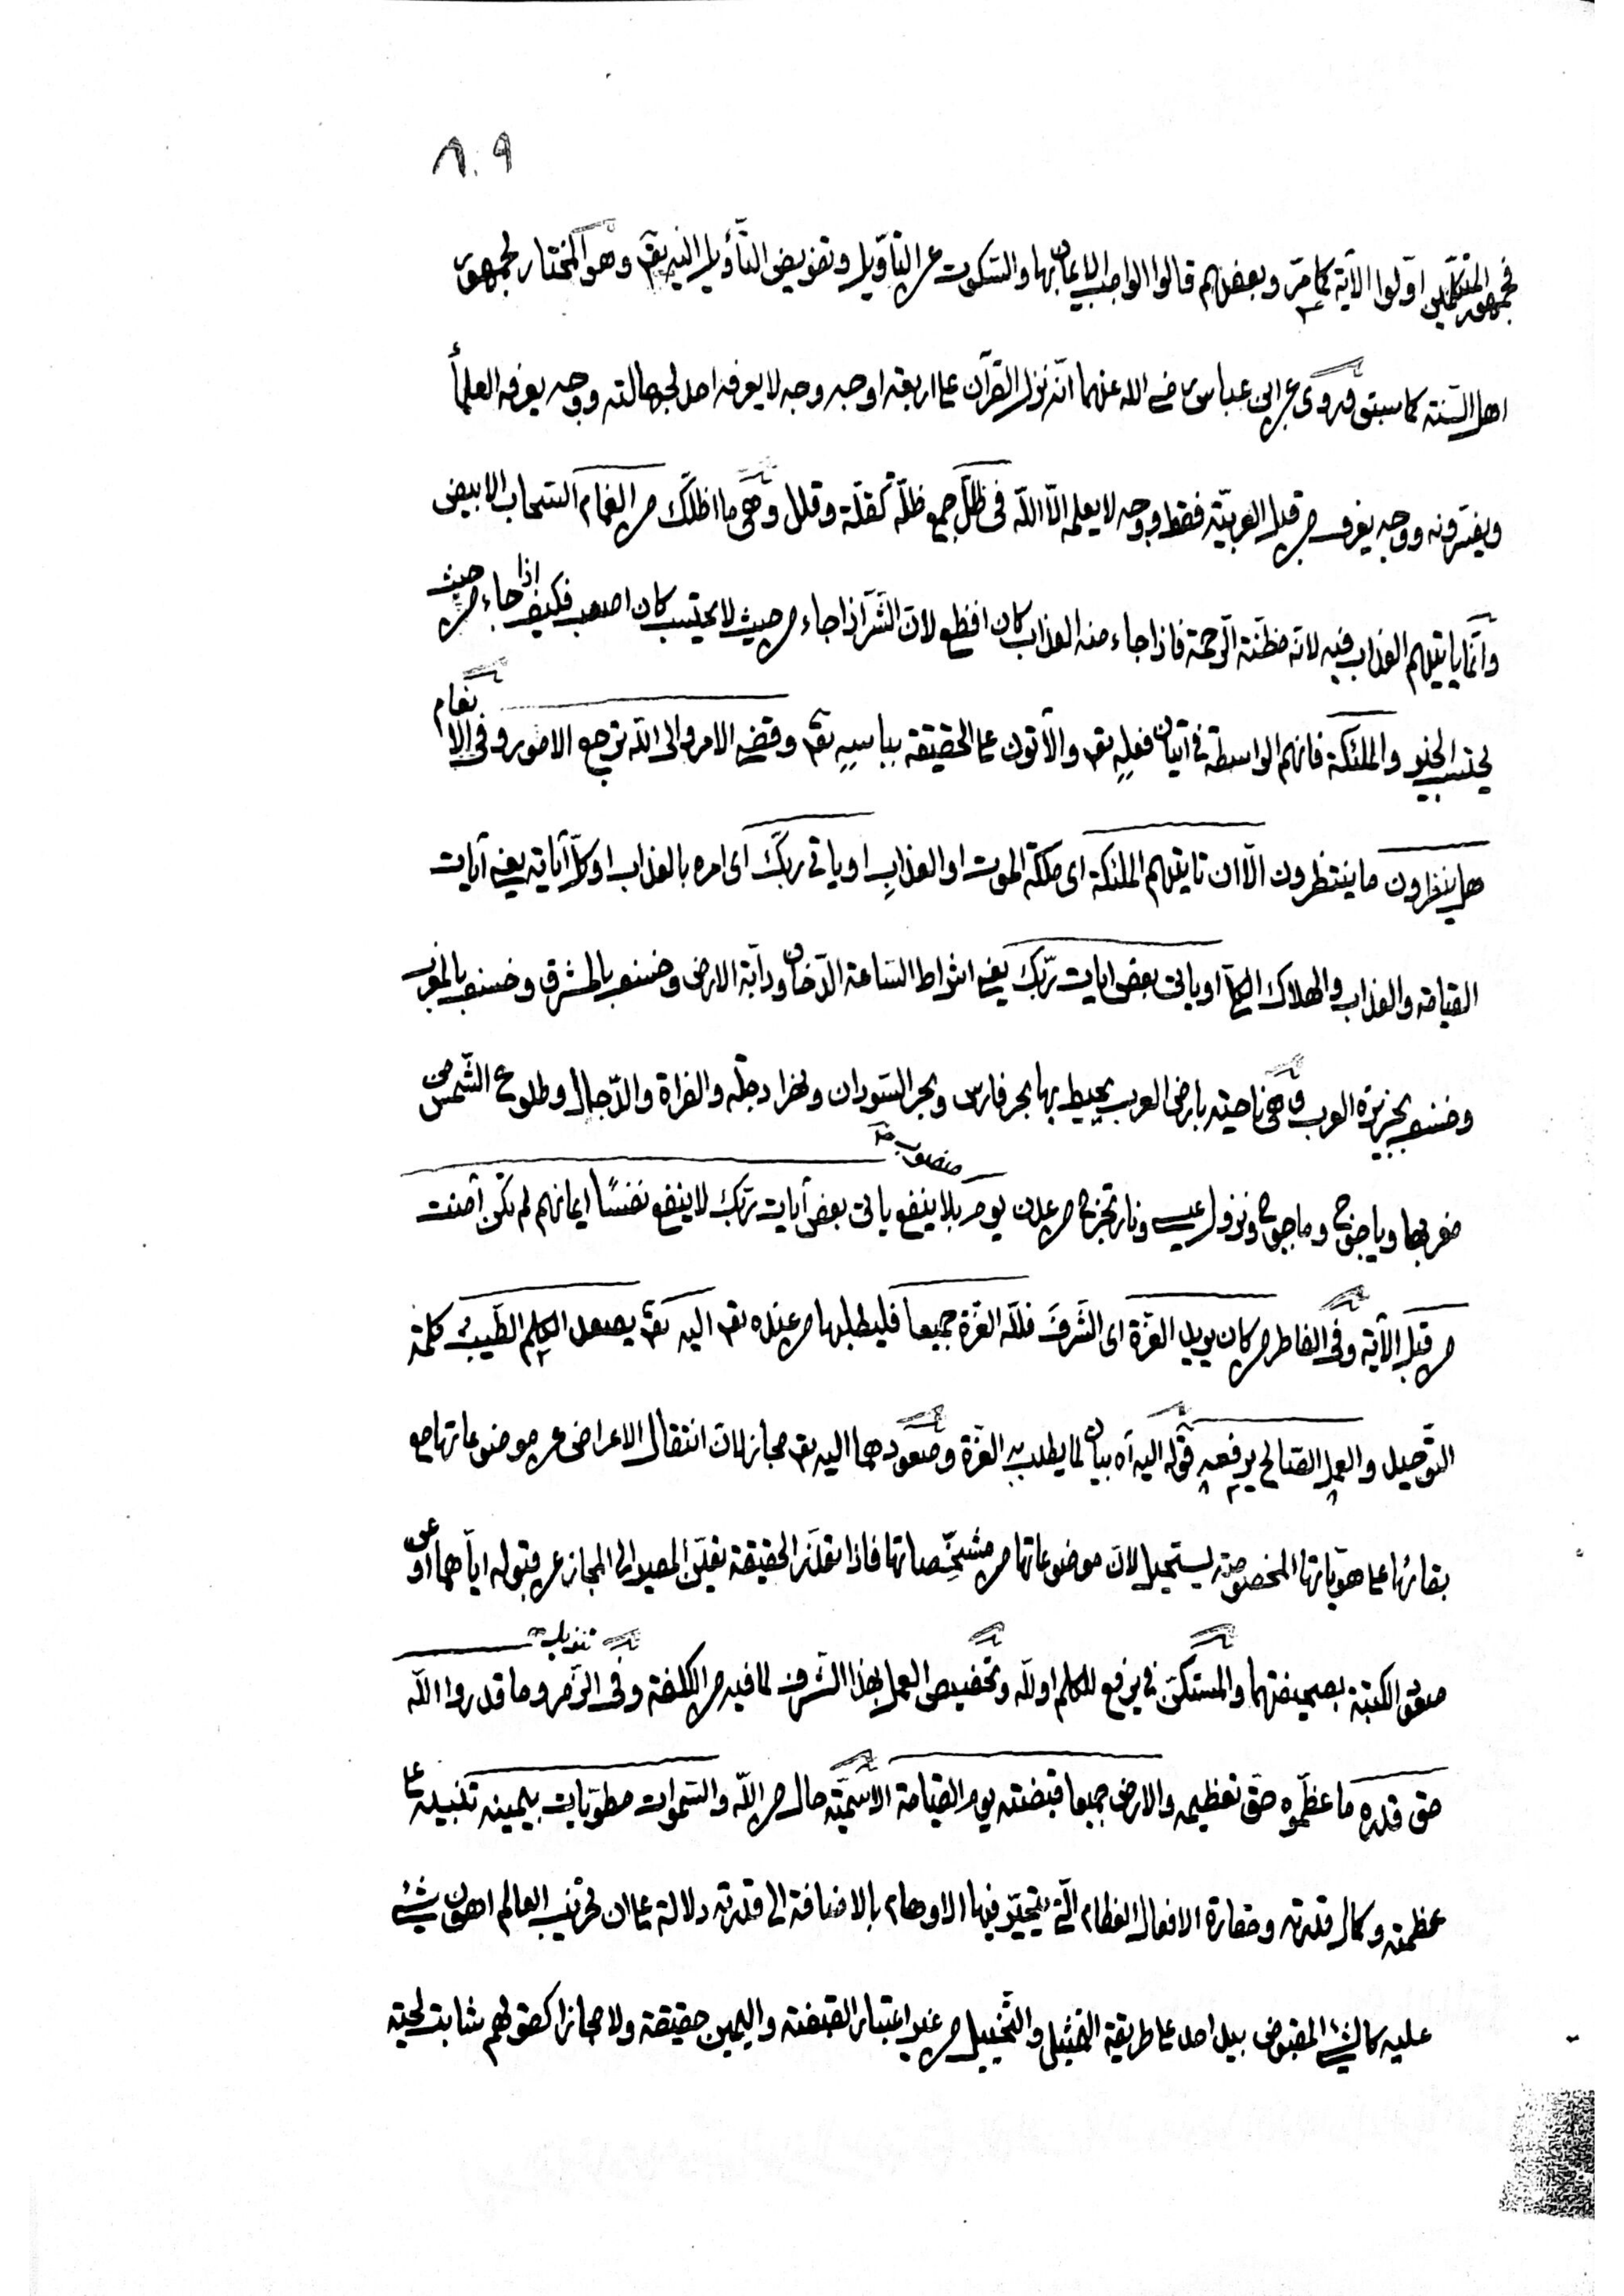 ٨٠٩
فجمهور المتكلّمين اوّلوا الآية كما مرّ وبعضهم قالوا الواجب الايمان بها والسّكوت عن التّأويل وتفويض التّأويل اليه تعٰ وهو المختار لجمهور
اهل السّنة كما سبق وروى عن ابن عباس رضى الله عنهما انّه نزل القرآن على اربعة اوجه وجه لا يعرفه احد لجهالته ووجه يعرفه العلمأ
ويفسّرونه ووجه يعرف من قبل العربيّة فقط ووجه لا يعلمه الّا الله فى ظلل جمع ظلّة كقلّة وقلل وهى ما اظلّك من الغمام السّحاب الابيض
وانّما ياتيهم العذاب فيه لانّه مظنّة الرّحمة فاذا جاء منه العذاب كان افظع لانّ الشّرّ اذا جاء من حيث لا يحتسب كان اصعب فكيف اذا جاء من حيث
يحتسب الخير والملئكة فانهم الواسطة فى اتيان فعلِه تعٰ والآتون على الحقيقة بباسِه تعٰ وقضى الامر والى الله ترجع الامور وفى الانعام
هل ينظرون ما ينتظرون الّا ان تايتهم الملئكة اى ملئكة الموت او العذابِ او ياتى ربّك اى امره بالعذاب او كلّ آياته يعنى آيات
القيامة والعذاب والهلاك الكلّ او ياتى بعض ايات ربّك يعنى اشراط السّاعة الدّخان ودابّة الارض وخسف بالمشرق وخسف بالمغرب
وخسف بجزيرة العرب وهى ناحية بارض العرب يحيط بها بحر فارس وبحر السّودان ونهرا دجلة والفراة والدّجال وطلوع الشّمس من
مغربها وياجوج وماجوج ونزول عيسى ونار تخرج من عدن يوم منصوب بلا ينفع ياتى بعض آيات ربّك لا ينفع نفسًا ايمانهم لم تكن آمنت
من قبل الآية وفى الفاطر من كان يريد العزّة اى الشّرف فللّه العزّة جميعا فليطلبها من عنده تعٰ اليه تعٰ يصعد الكلم الطّيب كلمة
التّوحيد والعمل الصّالح يرفعه قوله اليه آه بيان لما يطلب به العزّة وصعودهما اليه تعٰ مجاز لانّ انتقال الاعراض عن موضوعاتها مع
بقائها على هويّاتها المخصوصة يستحيل لانّ موضوعاتها من مشخّصاتها فاذا تعذّر الحقيقة تعيّن المصير الى المجاز عن قبوله ايّاهما او عن
صعود الكتبة بصحيفتهما والمستكنّ فى يرفع للكلم او للّه وتخصيص العمل بهذا الشّرف لما فيه من الكلفة وفى الزّمر وما قدروا الله
حق قدره ما عظّموه حقّ تعظيمه والارض جميعا قبضته يوم القيامة الاسميّة حال من الله والسّموات مطويّات بيمينه تنبيه على
عظمته وكمال قدرته وحقارة الافعال العظام الّتى يتحيّر فيها الاوهام بالاضافة الى قدرته دلالة على ان تخريب العالم اهون شئ
عليه كالشّئ المقبوض بيد احد على طريقة التّمثيل والتّخييل من غير اعتبار القبضة واليمين حقيقة ولا مجازا كقولهم شابت لحية